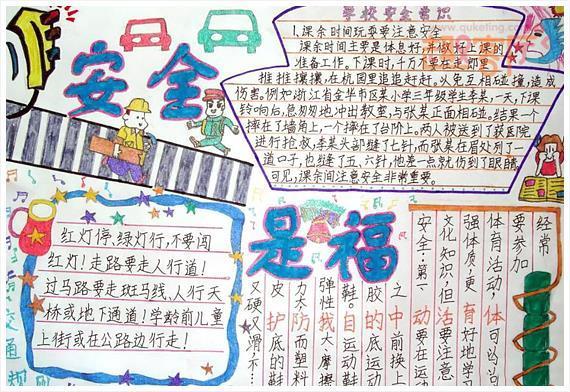 学校安全常识
www.quketing.com
1.课余时间玩耍要注意安全
课余时间主要是休息好,并做好上课的
准备工作。下课时,千万不要在走廊里
推推攘攘,在校园里追追赶赶。以免互相碰撞,造成
伤害。例如浙江省金华市区某小学三年级学生李某,一天,下课
铃响后,急匆匆地冲出教室,与张某正面相碰。结果一个
摔在了墙角上,一个摔在了台阶上。两人被送到了医院
进行抢救,李某头部缝了七针,而张某在眉处列了一
道口子,也缝了五、六针,他差一点就伤到了眼睛
可见,课余间注意安全非常重要。
安全
是福
红灯停、绿灯行,不要闯
红灯!走路要走人行道!
过马路要走斑马线、人行天
桥或地下通道!学龄前儿童
上街或在公路边行走!
交通规则
经常
要参加
体育活动,体可以
强体质,更育好地学习
文化知识,但活要注意
安全第一动要在运
之中前换上
胶的底运动
鞋。自运动
弹性我大、摩擦
力大防而塑料
皮护底的鞋
又硬又滑,不